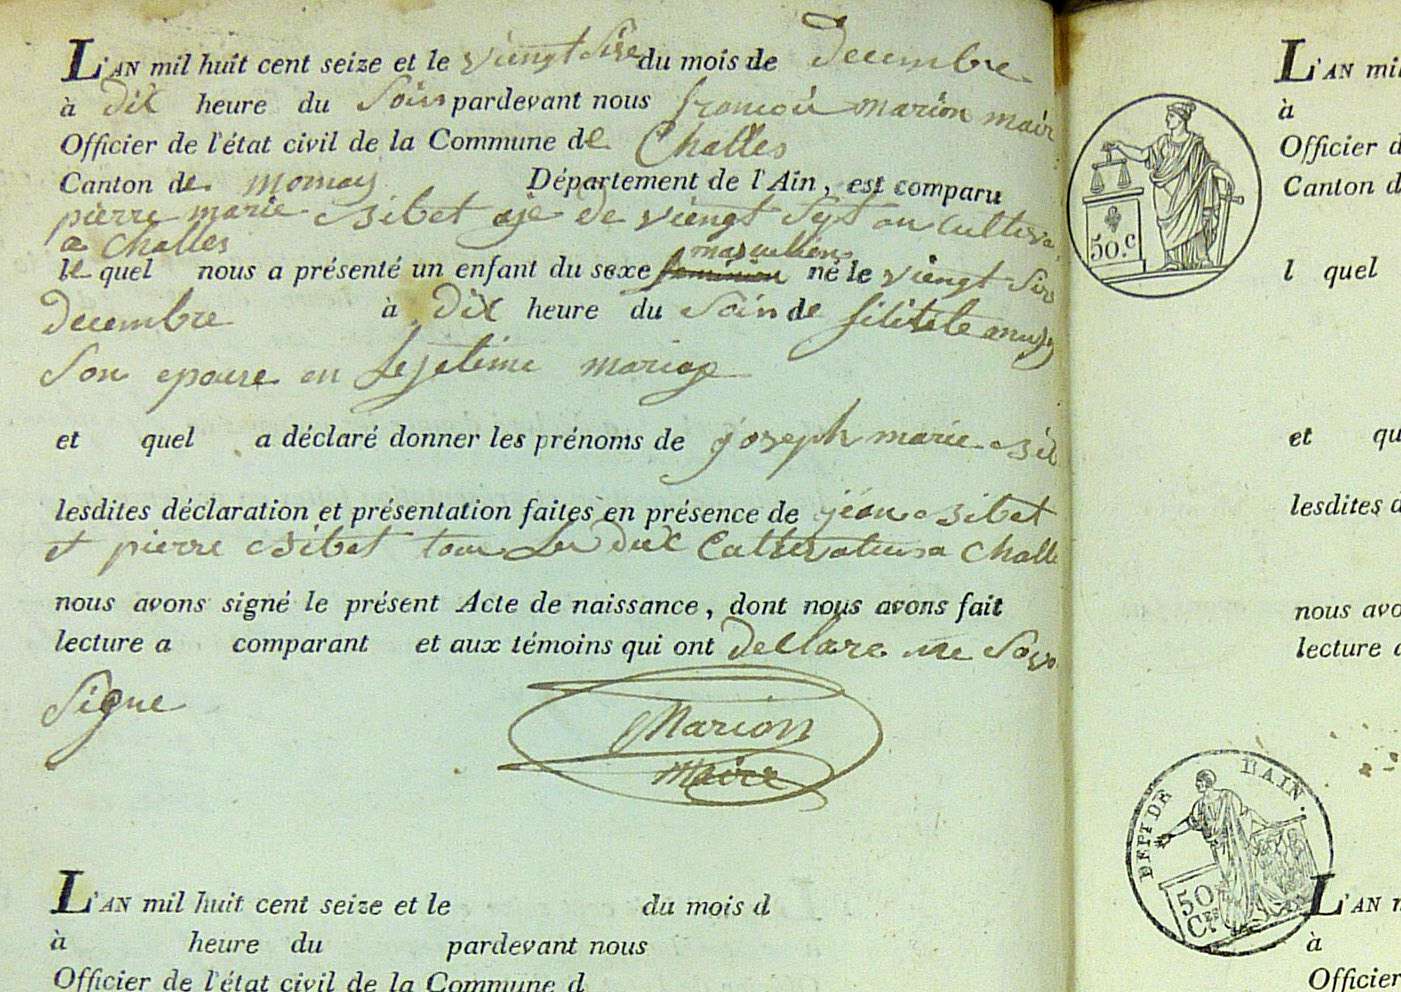 L'AN mil huit cent seize et le viengt sixe du mois de decembre
à dix heure du soir pardevant nous francois marion mair
Officier de l'état civil de la Commune de Challes
Canton de mornay Département de l'Ain, est comparu
pierre marie sibet aje de viengt sept an cultiva
a challes
le quel nous a présenté un enfant du sexe masculien né le viengt six
decembre à dix heure du soir de
son epouse en lejetime mariage
et quel a déclaré donner les prénoms de joseph marie sib
lesdites déclaration et présentation faites en présence de jean sibet
et pierre sibet tou les deux cultivateurs a challe
nous avons signé le présent Acte de naissance, dont nous avons fait
lecture a comparant et aux témoins qui ont declare ne savo
signe
Marion
maire
L'AN mil huit cent seize et le du mois d
à heure du pardevant nous
Officier de l'état civil de la Commune d
L'AN mil
à
Officier d
Canton d
50.c
l quel
et qu
lesdites d
nous avo
lecture a
DEPT DE L'AIN.
50
Ces
L'AN
à
Officier